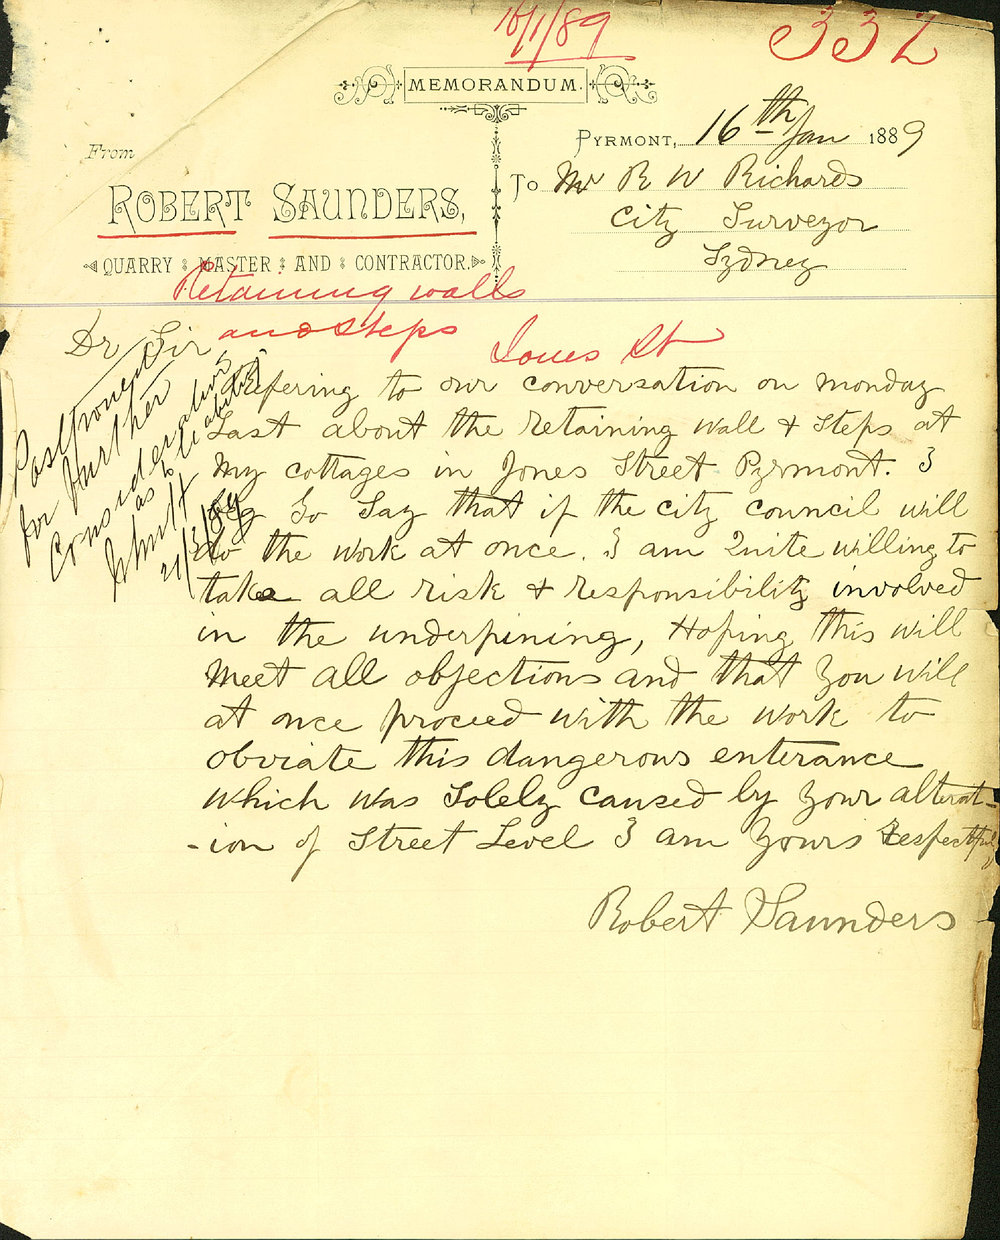 16/1/89
332
MEMORANDUM.
From
ROBERT SAUNDERS,
QUARRY MASTER AND CONTRACTOR.
PYRMONT, 16th Jan 1889
To Mr R W Richards
City Surveyor
Sydney
Retaining walls
and steps
Jones St
Dr Sir
Refering to our conversation on monday
Last about the retaining wall & Steps at
my cottages in Jones Street Pyrmont. I
beg to Say that if the city council will
do the work at once. I am Quite willing to
take all risk & responsibility involved
in the underpining, Hoping this will
meet all objections and that you will
at once proceed with the work to
obviate this dangerous enterance
which was Solely caused by your alterat-
-ion of Street Level I am yours respectfuly
Robert Saunders
Postponed
for further
Consideration
as to liability
21/3/89